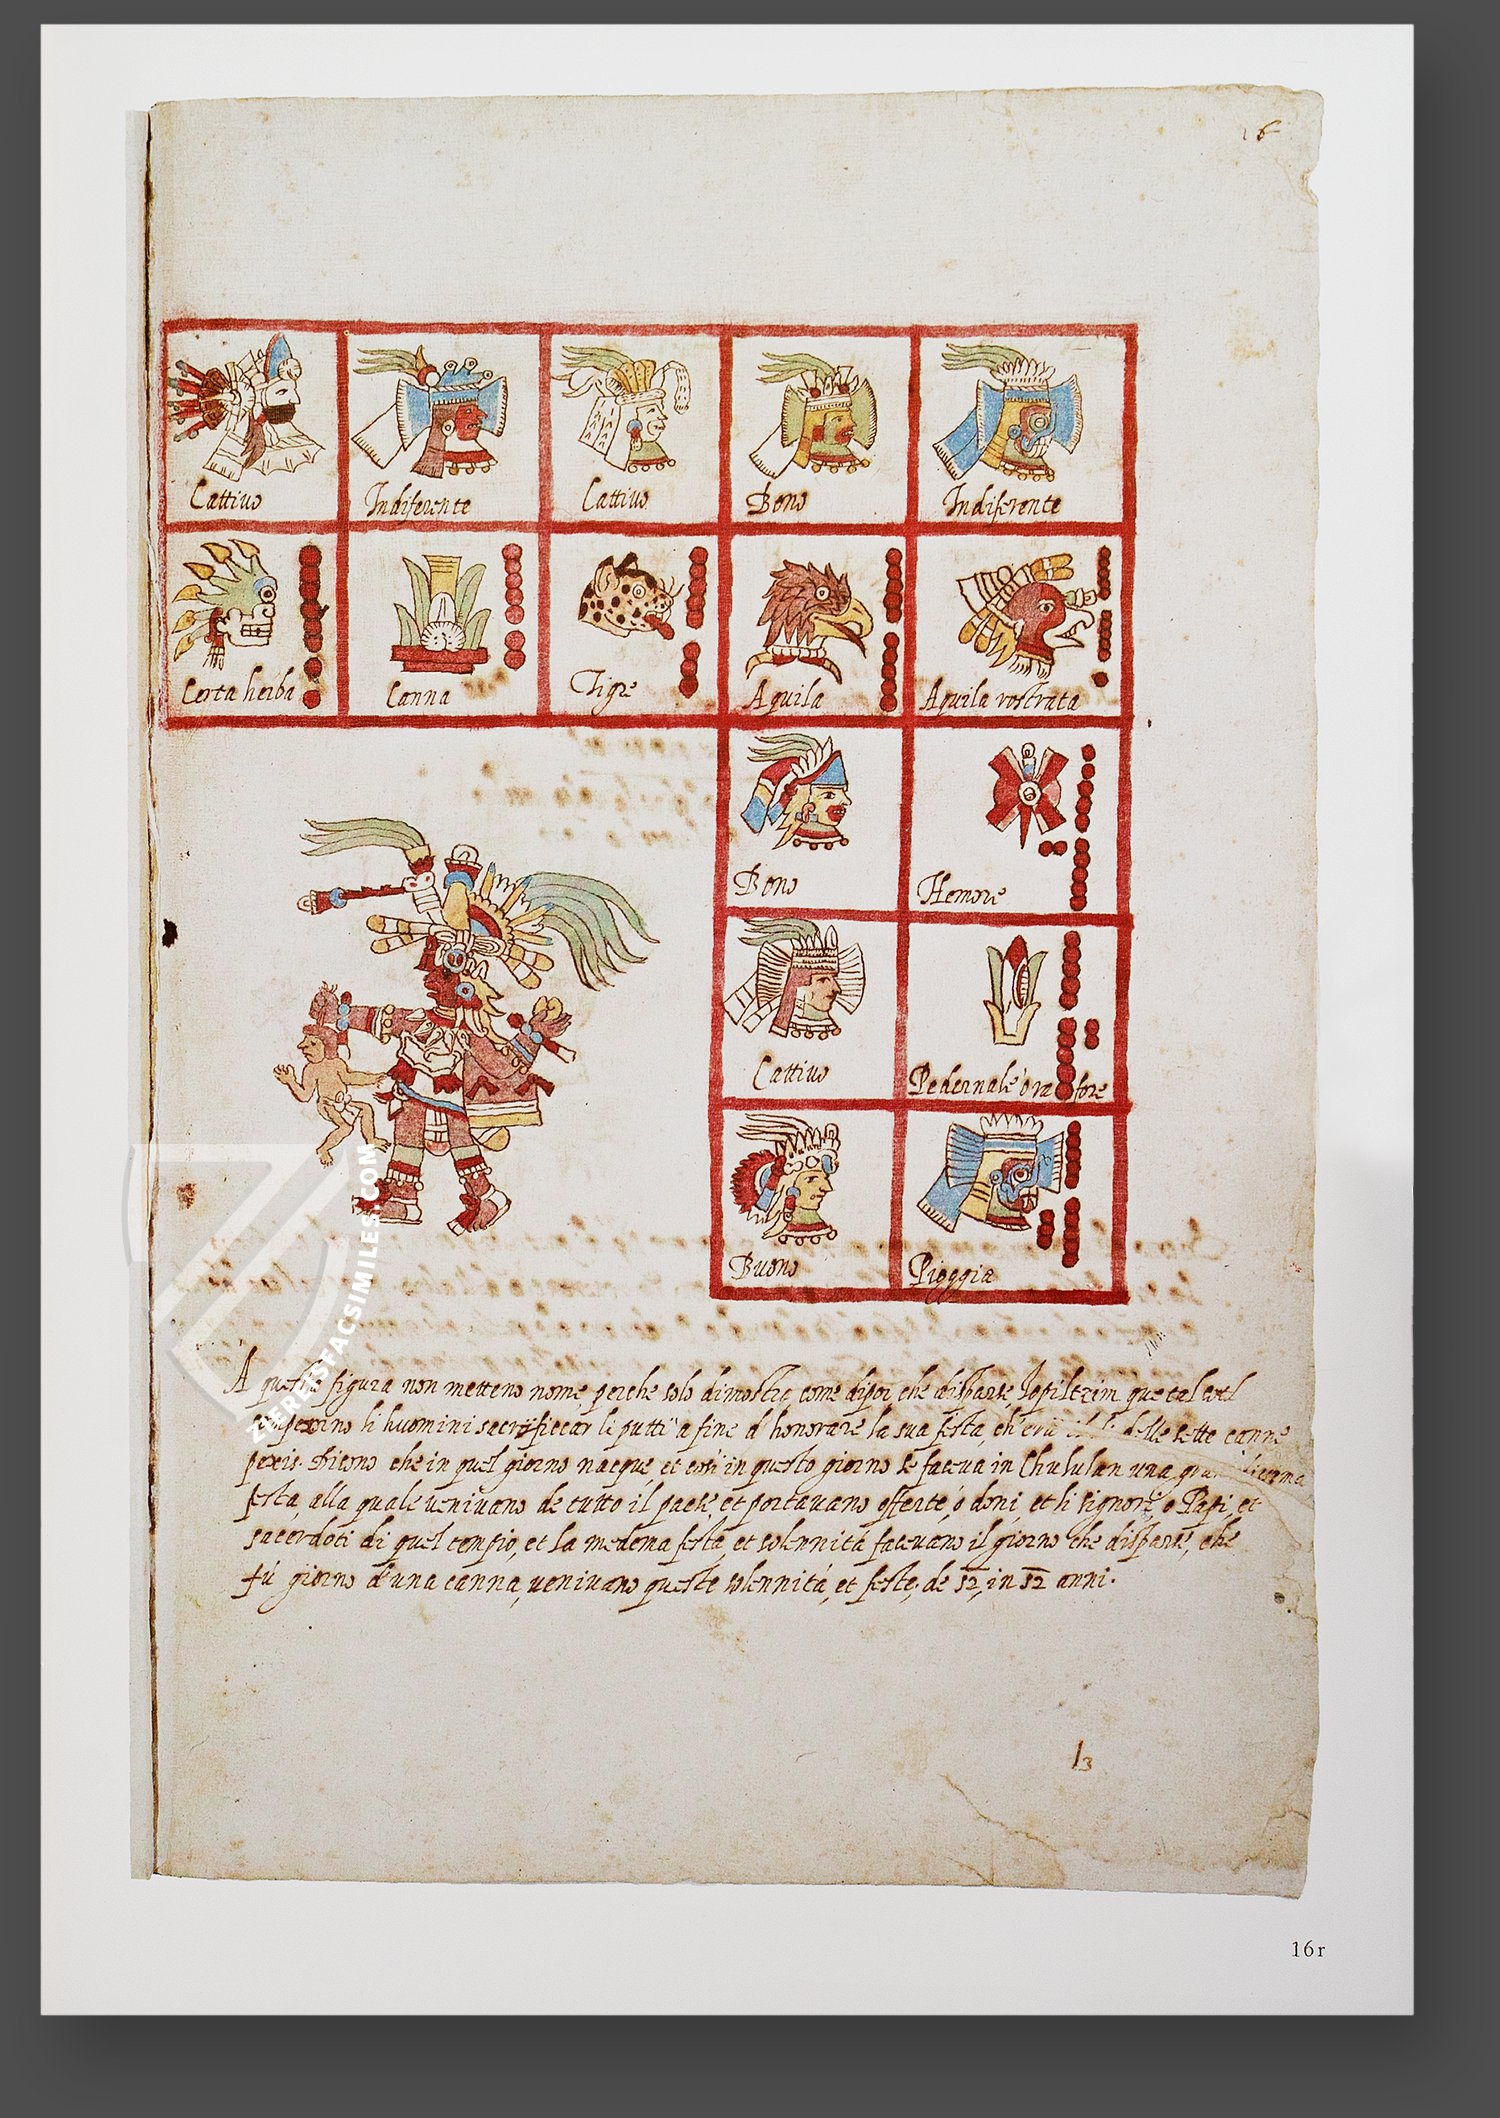 16
Cattivo
Indiferente
Cattivo
Bono
Indiferente
Certa herba
Canna
Tigre
Aquila
Aquila vostrata
Bono
Hemore
Cattivo
Pedernale o ra fore
Buono
Pioggia
A questa figura non metteno nome, perche solo dimostra, come dipoi che disparse, Topiltzin que tal coatl
li huomini sacrifiecar li putti a fine d'honorare la sua festa, ch'era delle sette canne
peris. Dicono che in quel giorno nacque et così in questo giorno se faceva in Chululan una
festa, alla quale venivano de tutto il paese, et portavano offerte, o doni, et li signori, o Papi, et
sacerdoti di quel tempio, et la medema festa, et solennità facevano il giorno che disparse, che
fù giorno d'una canna, venivano queste solennità, et feste, de 52, in 52 anni.
13
ZIEREISFACSIMILES.COM
16r